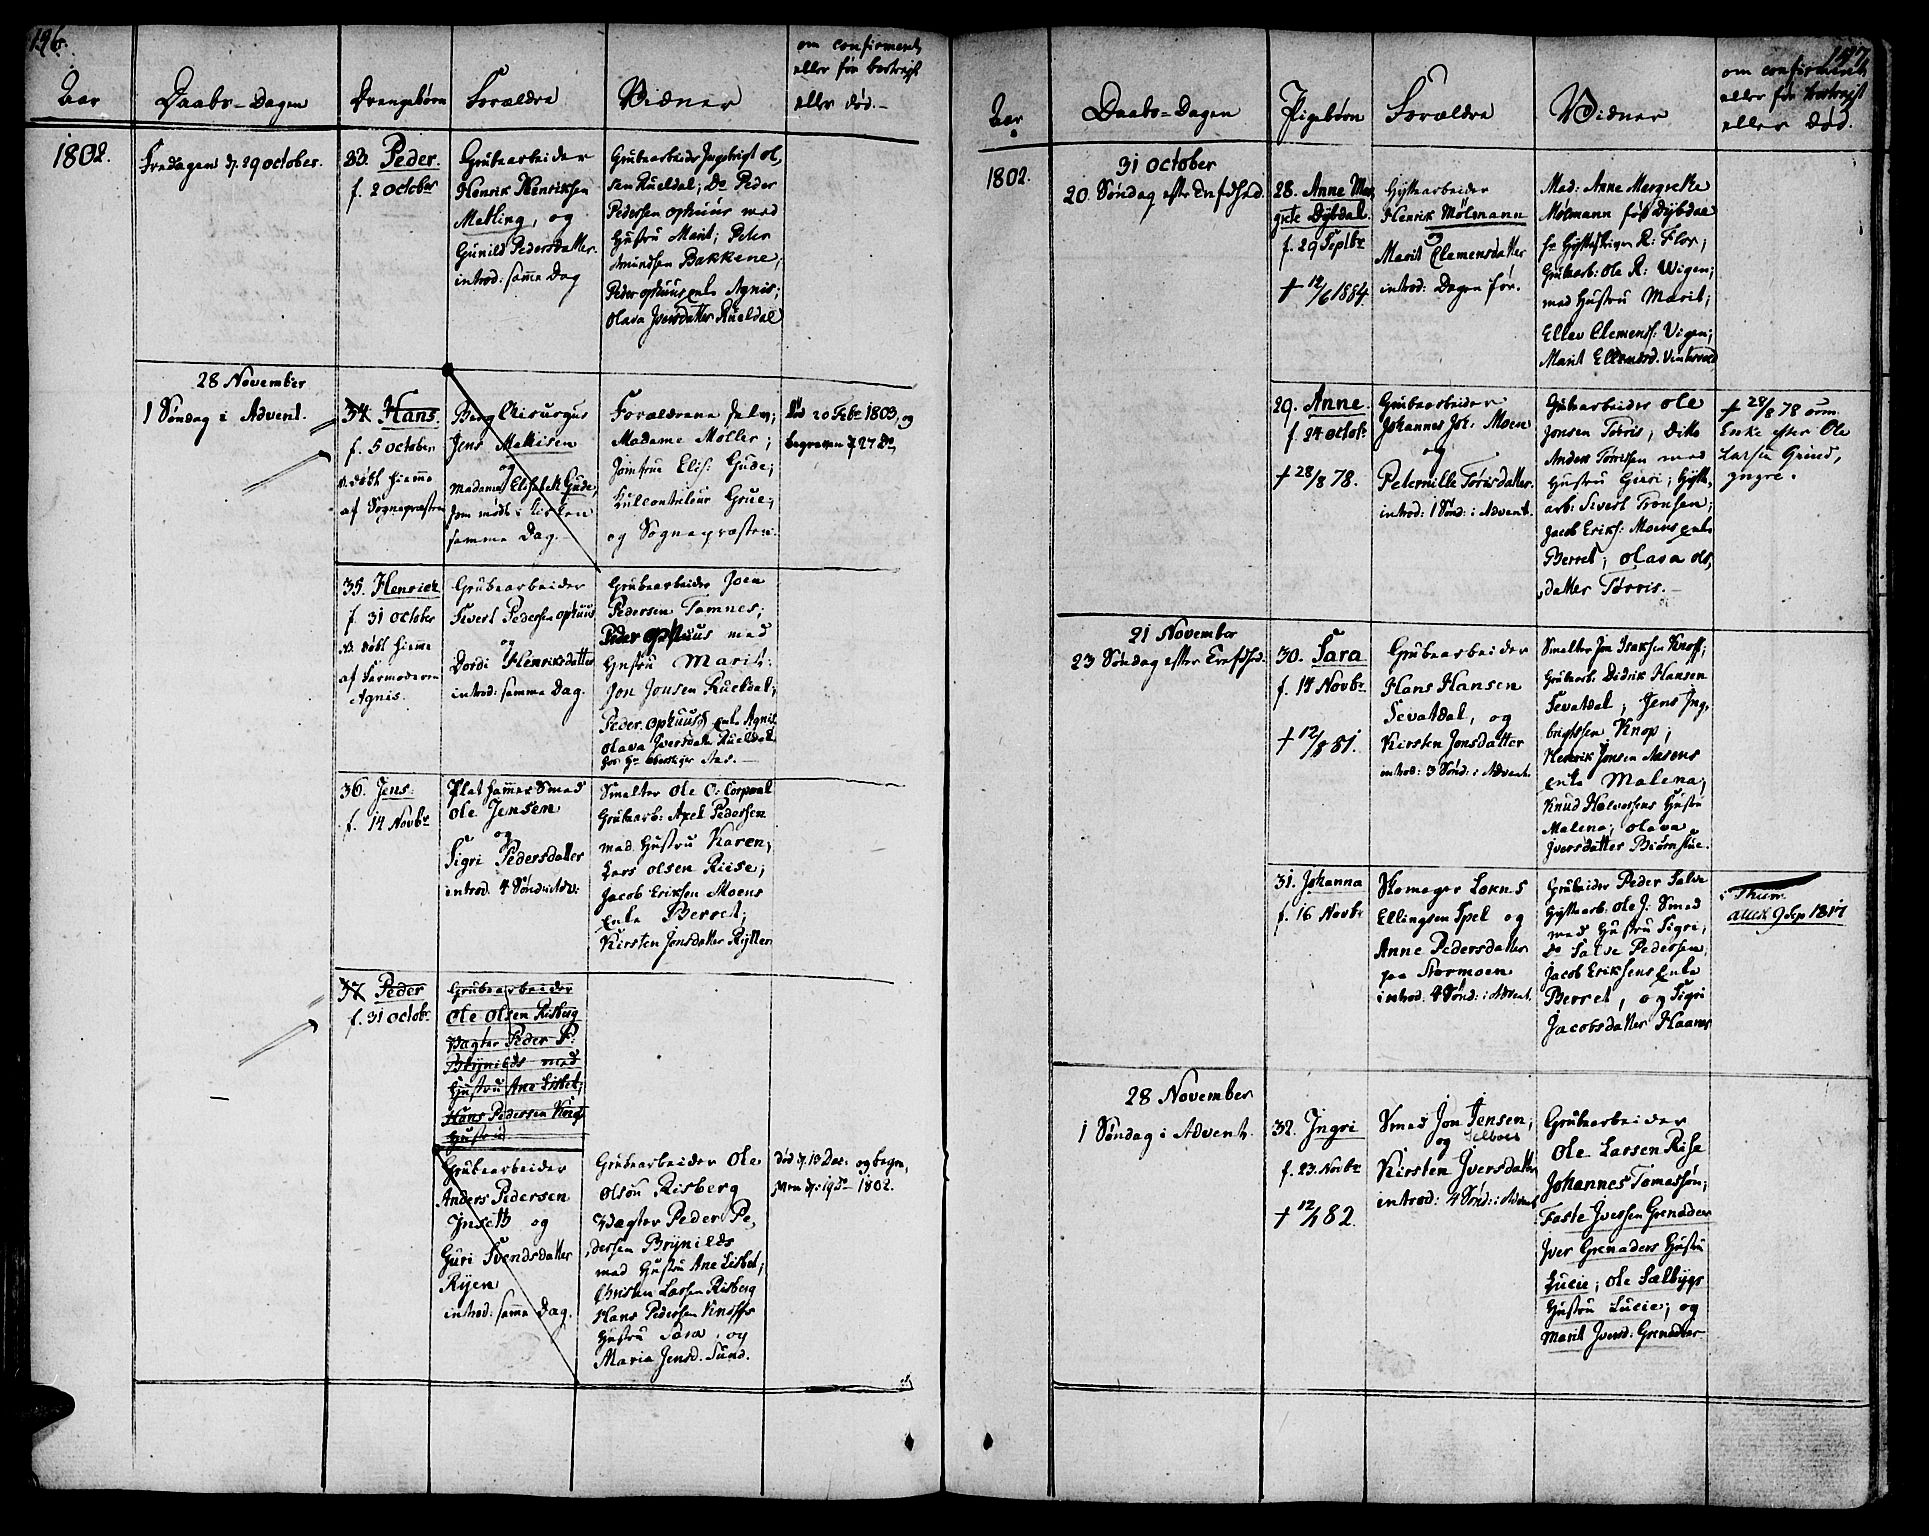 196.
Aar
Daabs-Dagen
Drengebørn
Forældre
Vidner
om confirmeret
eller før bortreist
eller død.-
1802.
Fredagen d. 29 October.
33. Peder.
f. 2 October
Grubearbeider
Henrik Henriksen
Metling, og
Gunild Pedersdatter.
introd: samme Dag
Grubearbeider Ingebrigt Ol,
sen Rueldal; Do Peder
Pedersen Ophuus med
Hustru Marit; Peter
Amundsen Bakkene;
Peder Ophuus Enke Agnis;
Olava Iversdatter Rueldal
28 November
1 Søndag i Advent.
34. Hans.
f. 5 October
n. døbt hiemme
af Sognepræsten
Berg Chirurgus
Jens Mathisen
og
Madame Elisabeth Gude,
som mødte i Kirken
samme Dag.
Forældrene selv;
Madame Møller;
Jomfrue Elis: Gude;
Kulcontrlleur Grue;
og Sognepræsten.
død 20 Febr 1803, og
begraven d. 27 Do
35. Henrich
f. 31 October
n. døbt hiemme
af Farmoderen
Agnis.
Grubearbeider
Sivert Pedersen Ophuus
og
Dordi Henriksdatter
introd: samme Dag.
Grubearbeider Joen
Pedersen Tamnes;
Peder Ophuus med
Hustru Marit;
Jon Jonsen Rueldal;
Peder Ophuus's Enke Agnis
Olava Iversdatter Rueldal
36. Jens.
f. 14 Novbr
Plathammer Smed
Ole Jensen
og
Sigri Pedersdatter
introd. 4 Sønd: i Adv:
Smelter Ole O: Corporal
Grubearb: Axel Pedersen
med Hustru Karen;
Lars Olsen Riise;
Jacob Eriksen Moens
Enke Berret;
Kirsten Jonsdatter Rytter
37. Peder
f. 31 Octobr
Grubearbeider
Ole Olsen Risberg
Vagter Peder P.
Brynilds med
Hustru Ane Lisbet;
Hans Pedersen Knof
Hustru
Grubearbeider
Anders Pedersen
Insett og
Guri Svendsdatter
Ryen
introd: samme Dag.
Grubearbeider Ole
Olson Risberg
Vagter Peder Pe,
dersen Brynilds
med Hustru Ane Lisbet;
Christen Larsen Risberg
Hans Pedersen Knoffs
Hustru Sara, og
Maria Jensd. Sund.
død d. 13 Dec: og begra,
ven d. 19 Do 1802.
197
Aar
Daabs-Dagen
Pigebørn
Forældre
Vidner
om confirmeret
eller før bortreist
eller død.
1802.
31 October
20. Søndag efter Trefdhed.
28. Anne Mar,
grete Dybdal.
f. 29 Septbr
† 12/6 1884.
Hyttearbeider
Henrik Mølmann
og
Marit Clemensdatter
introd: Dagen før.
Mad: Anne Margrethe
Mølmann fød Dybdal
Hr Hytteskriger R: Flor;
Grubearb: Ole R: Wigen;
med Hustru Marit;
Ellev Clemens: Vigen;
Marit Ellevsd. Vintervold
29. Anne.
f. 24 Octob.
† 28/8 78.
Grubearbeider
Johannes Joh: Moen
og
Peternille Torisdatter.
introd: 1 Sønd: i Advent.
Grubearbeider Ole
Jonsen Torris; Ditto
Anders Torrissen med
Hustru Guri; Hytte,
arb: Sivert Tronsen;
Jacob Eriks: Moens Enke
Berret; Olava Ols,
datter Torris.-
† 28/8 78 som
Enke efter Ole
Larsen Grind,
yngre.
21 November
23 Søndag efter Trefdhed.
30. Sara
f. 14 Novbr
† 12/8 81.
Grubearbeider
Hans Hansen
Sevatdal, og
Kirsten Jonsdatter
introd: 3 Sønd: i Advent.
Smelter Jon Isaksen Knoff;
Grubearb: Didrik Hansen
Sevatdal; Jens Ing,
brigtsen Knop;
Henrik Jonsen Aasens
Enke Malena;
Knud Halvorsens Hustru
Malena; Olava
Iversdatter Biørnstue.
31. Johanna
f. 16 Novbr
Skomager Loxns
Ellingsen Spel og
Anne Pedersdatter
paa Stormoen
introd. 4 Sønd: i Advent.
Grubeider Peder Salve
Hyttearb: Ole J: Smed
med Hustru Sigri;
Do Salve Pedersen;
Jacob Eriksens Enke
Berret, og Sigri
Jacobsdatter Haanes
i Thiem
attest 9 Sep 1817
28 November
1 Søndag i Advent.
32. Ingri
f. 23. Novbr
† 12/1 82.
Smed Jon Jensen;
og Selboe
Kirsten Iversdatter
introd: 4 Sønd: i Advent
Grubearbeider
Ole Larsen Rise
Johannes Tomassøn;
Faste Iversen Grenader
Iver Grenaders Hustru
Lucie; Ole Sælbygs
Hustru Lucie; og
Marit Iversd: Grenader